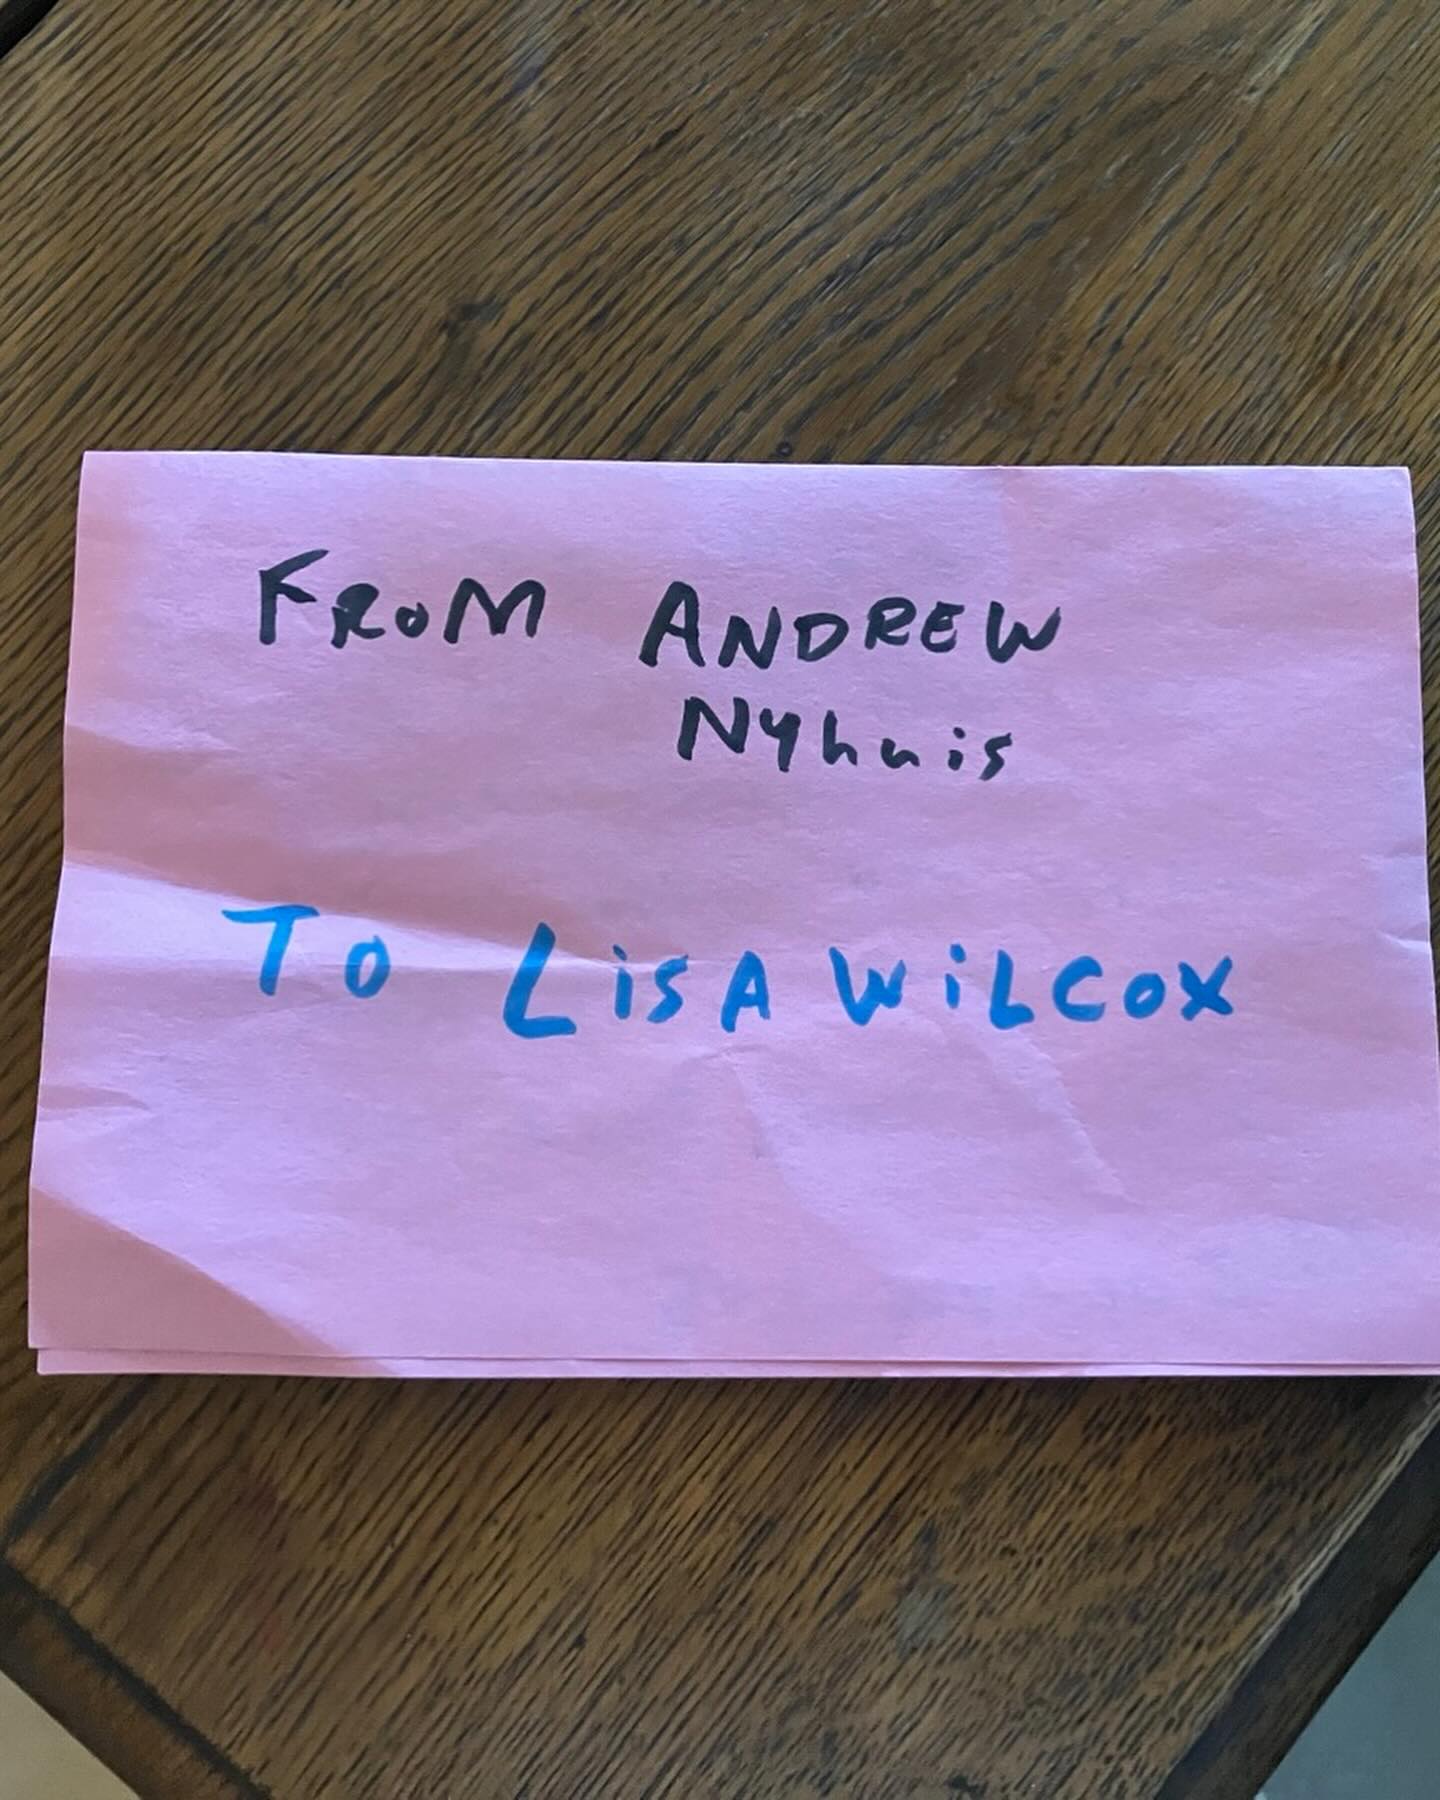 FRoM ANDREW
Nyhuis
To LiSA WiLCoX